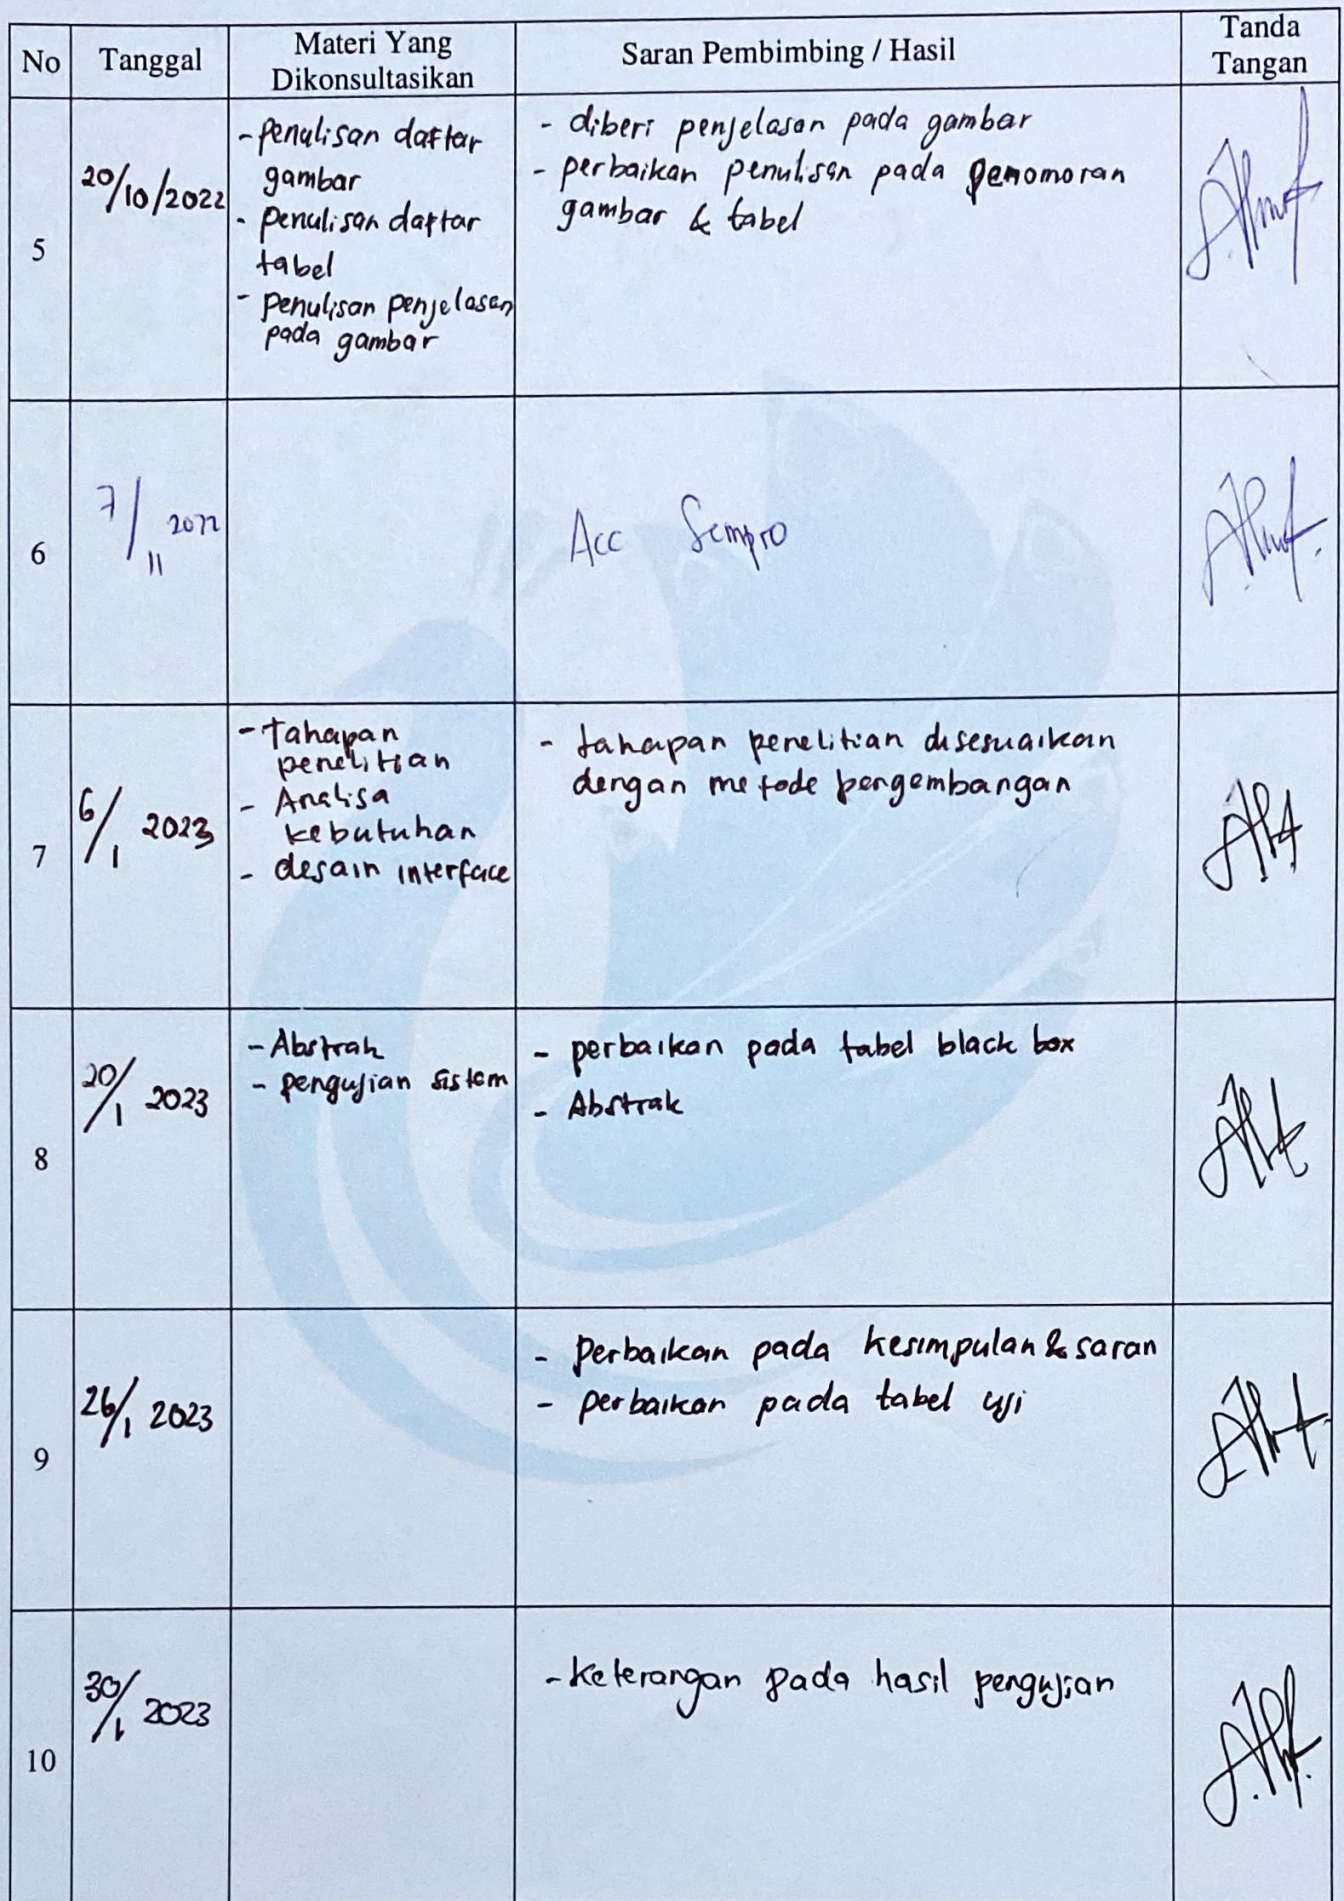 No
Tanggal
Materi Yang
Dikonsultasikan
Saran Pembimbing / Hasil
Tanda
Tangan
5
20/10/2022
- penulisan daftar
gambar
- penulisan daftar
tabel
- penulisan penjelasan
pada gambar
- diberi penjelasan pada gambar
- perbaikan penulisan pada penomoran
gambar & tabel
6
7/11 2022
Acc Sempro
7
6/1 2023
- Tahapan
penelitian
- Analisa
kebutuhan
- desain interface
- tahapan penelitian disesuaikan
dengan metode pengembangan
8
20/1 2023
- Abstrak
- pengujian sistem
- perbaikan pada tabel black box
- Abstrak
9
26/1 2023
- perbaikan pada kesimpulan & saran
- perbaikan pada tabel uji
10
30/1 2023
- keterangan pada hasil pengujian